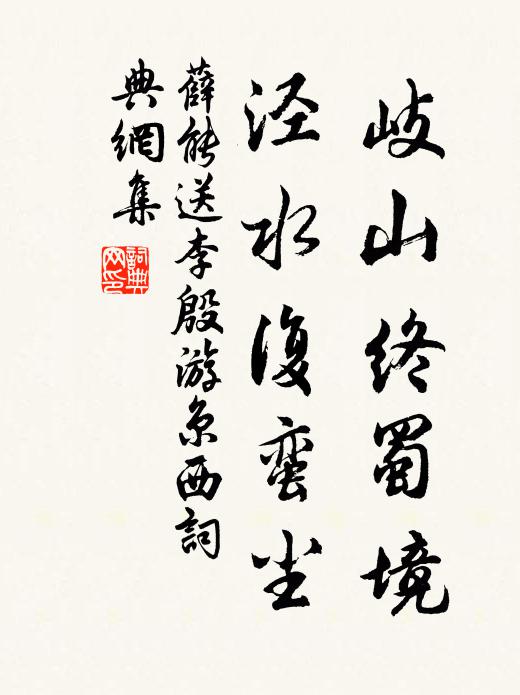 岐山终蜀境
泾水复蛮尘
薛能送李殷游京西詞
典網集
詞典
网印